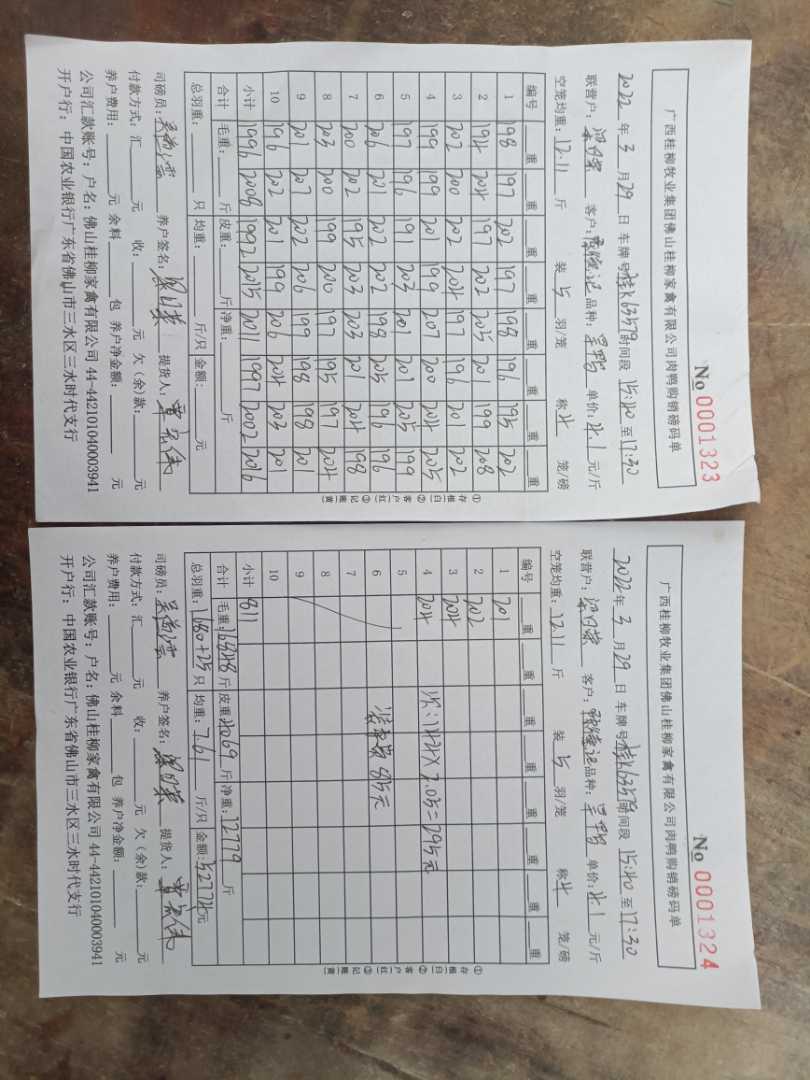 No 0001323
广西桂柳牧业集团佛山桂柳家禽有限公司肉鸭购销磅码单
2022 年 3 月 29 日 车牌号 桂K63579 时间段 15:40 至 17:30
联营户: 客户: 品种: 单价: 4.1 元/斤
空笼均重: 12.11 斤 装 5 羽/笼 称 4 笼/磅
编号 重 重 重 重 重 重 重 重
1 198 197 202 197 198 196 195 202
2 194 204 197 202 205 201 199 208
3 202 200 202 204 197 196 201 202
4 199 199 201 199 207 200 204 205
5 197 196 191 203 201 201 205 199
6 206 201 202 202 198 205 196 196
7 200 202 195 203 203 201 204 198
8 203 200 199 200 197 195 197 204
9 201 207 202 206 199 198 198 201
10 196 202 201 199 206 204 203 201
小计 1996 2008 1992 2015 2011 1997 2002 2016
合计 毛重: 斤 皮重: 斤 净重: 斤
总羽重: 只 均重: 斤/只 金额: 元
司磅员: 养户签名: 提货人:
付款方式: 汇 元 收: 元 欠(余)款: 元
养户费用: 元 余料 包 养户净金额: 元
公司汇款账号: 户名: 佛山桂柳家禽有限公司 44-442101040003941
开户行: 中国农业银行广东省佛山市三水区三水时代支行
①存根(白) ②客户(红) ③记账(黄)
No 0001324
广西桂柳牧业集团佛山桂柳家禽有限公司肉鸭购销磅码单
2022 年 3 月 29 日 车牌号 桂K63579 时间段 15:40 至 17:30
联营户: 客户: 品种: 单价: 4.1 元/斤
空笼均重: 12.11 斤 装 5 羽/笼 称 4 笼/磅
编号 重 重 重 重 重 重 重 重
1 201
2 202
3 204
4 204
5
6 装车费 85元
7
8
9
10
小计 811
合计 毛重: 16848 斤 皮重: 4069 斤 净重: 12779 斤
总羽重: 1680+25 只 均重: 7.61 斤/只 金额: 52774 元
司磅员: 养户签名: 提货人:
付款方式: 汇 元 收: 元 欠(余)款: 元
养户费用: 元 余料 包 养户净金额: 元
公司汇款账号: 户名: 佛山桂柳家禽有限公司 44-442101040003941
开户行: 中国农业银行广东省佛山市三水区三水时代支行
①存根(白) ②客户(红) ③记账(黄)